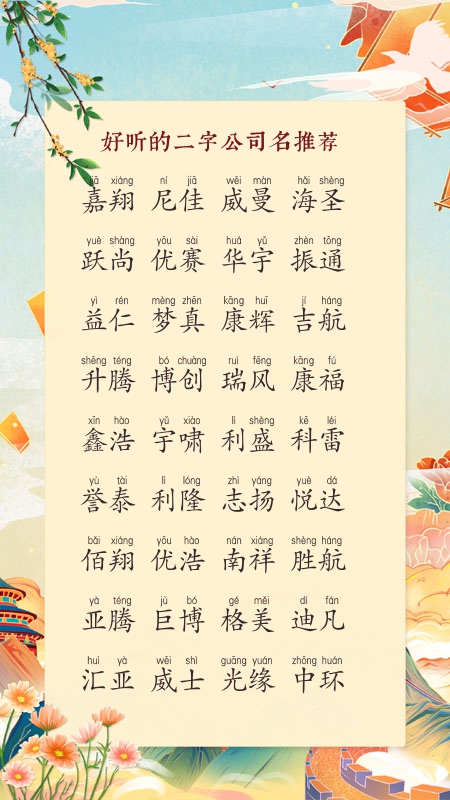 好听的二字公司名推荐
jiā xiáng ní jiā wēi màn hǎi shèng
嘉翔 尼佳 威曼 海圣
yuè shàng yōu sài huá yǔ zhèn tōng
跃尚 优赛 华宇 振通
yì rén mèng zhēn kāng huī jí háng
益仁 梦真 康辉 吉航
shēng téng bó chuàng ruì fēng kāng fú
升腾 博创 瑞风 康福
xīn hào yǔ xiào lì shèng kē léi
鑫浩 宇啸 利盛 科雷
yù tài lì lóng zhì yáng yuè dá
誉泰 利隆 志扬 悦达
bǎi xiáng yōu hào nán xiáng shèng háng
佰翔 优浩 南祥 胜航
yà téng jù bó gé měi dí fán
亚腾 巨博 格美 迪凡
huì yà wēi shì guāng yuán zhōng huán
汇亚 威士 光缘 中环